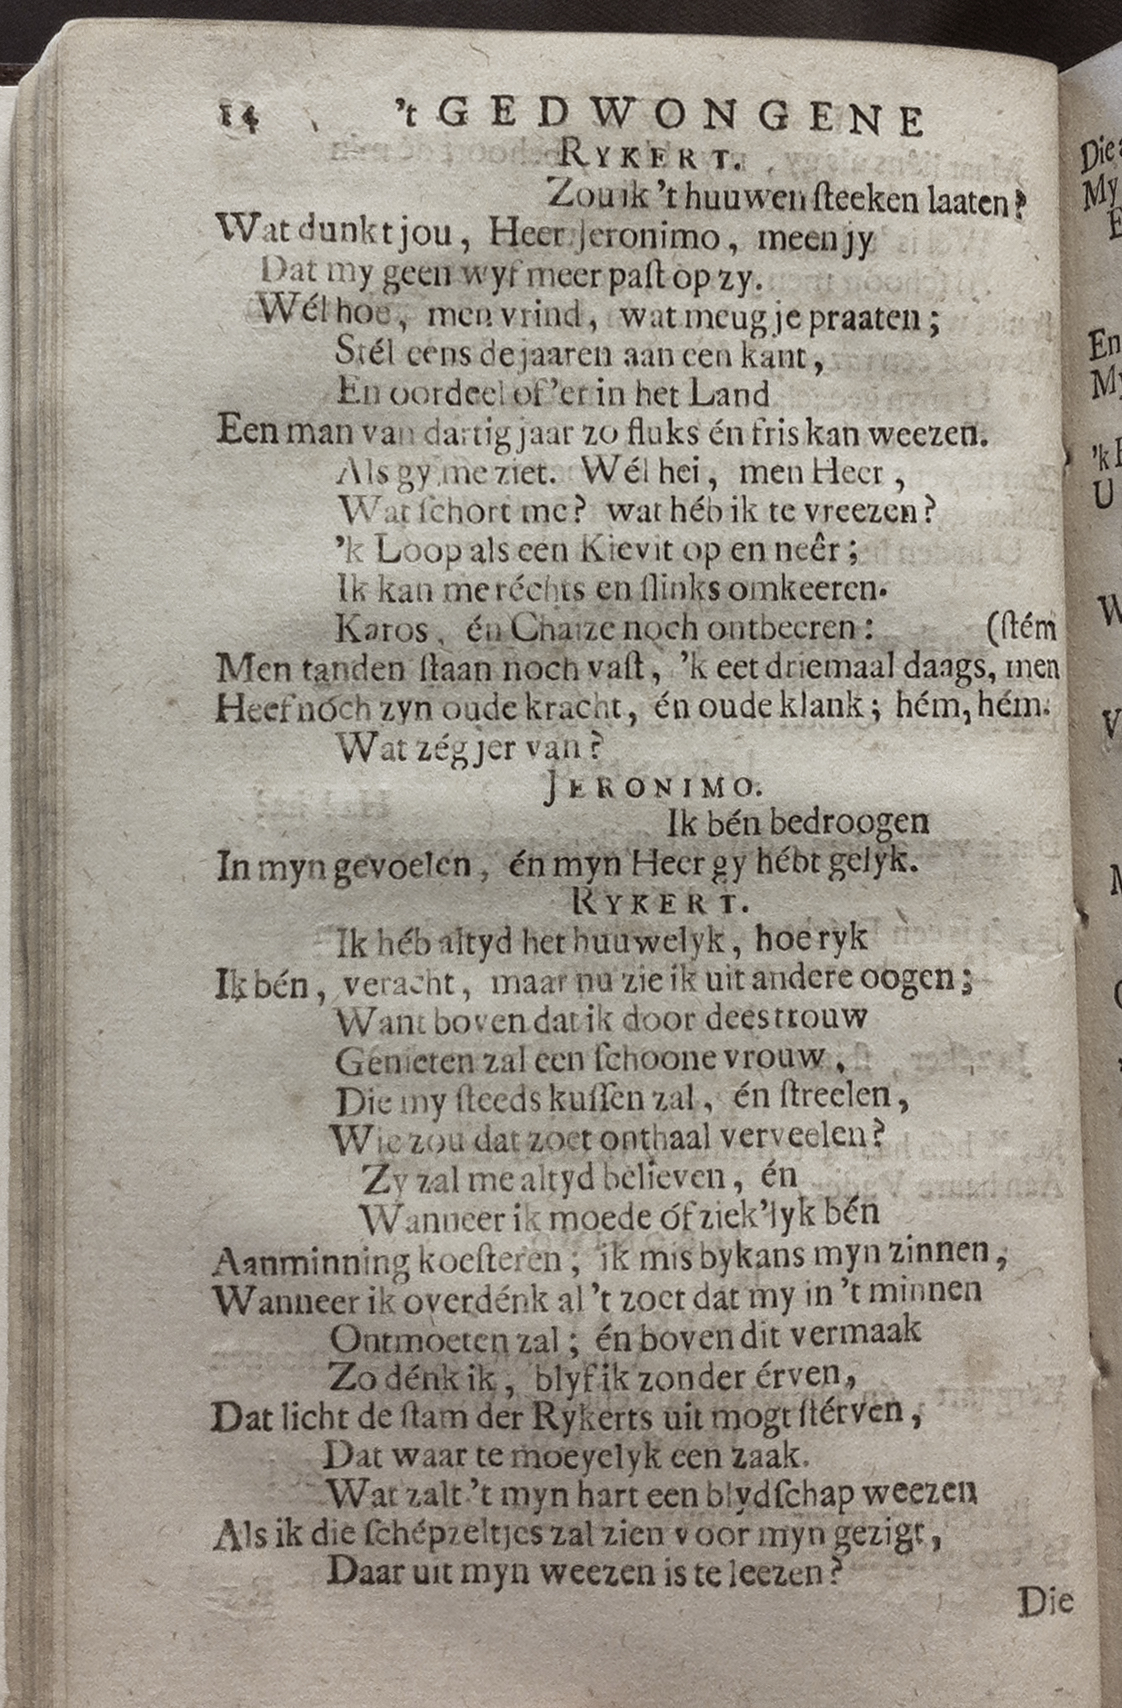 14 't GEDWONGENE
RYKERT.
Zou ik 't huuwen ſteeken laaten?
Wat dunkt jou, Heer Jeronimo, meen jy
Dat my geen wyf meer paſt op zy.
Wél hoe, men vrind, wat meug je praaten;
Stél eens de jaaren aan een kant,
En oordeel of 'er in het Land
Een man van dartig jaar zo fluks én fris kan weezen.
Als gy me ziet. Wél hei, men Heer,
Wat ſchort me? wat héb ik te vreezen?
'k Loop als een Kievit op en neêr;
Ik kan me réchts en ſlinks omkeeren.
Karos, én Chaize noch ontbeeren: (ſtém
Men tanden ſtaan noch vaſt, 'k eet driemaal daags, men
Heef nóch zyn oude kracht, én oude klank; hém, hém.
Wat zég jer van?
JERONIMO.
Ik bén bedroogen
In myn gevoelen, én myn Heer gy hébt gelyk.
RYKERT.
Ik héb altyd het huuwelyk, hoe ryk
Ik bén, veracht, maar nu zie ik uit andere oogen;
Want boven dat ik door dees trouw
Genieten zal een ſchoone vrouw,
Die my ſteeds kuſſen zal, én ſtreelen,
Wie zou dat zoet onthaal verveelen?
Zy zal me altyd believen, én
Wanneer ik moede óf ziek'lyk bén
Aanminning koeſteren; ik mis bykans myn zinnen,
Wanneer ik overdénk al 't zoet dat my in 't minnen
Ontmoeten zal; én boven dit vermaak
Zo dénk ik, blyf ik zonder érven,
Dat licht de ſtam der Rykerts uit mogt ſtérven,
Dat waar te moeyelyk een zaak.
Wat zalt 't myn hart een blydſchap weezen
Als ik die ſchépzeltjes zal zien voor myn gezigt,
Daar uit myn weezen is te leezen?
Die